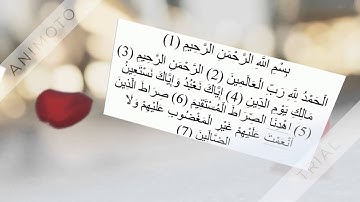 ANIMOTO
بِسْمِ اللَّهِ الرَّحْمَنِ الرَّحِيمِ (1)
الْحَمْدُ لِلَّهِ رَبِّ الْعَالَمِينَ (2) الرَّحْمَنِ الرَّحِيمِ (3)
مَالِكِ يَوْمِ الدِّينِ (4) إِيَّاكَ نَعْبُدُ وَإِيَّاكَ نَسْتَعِينُ
(5) اهْدِنَا الصِّرَاطَ الْمُسْتَقِيمَ (6) صِرَاطَ الَّذِينَ
أَنْعَمْتَ عَلَيْهِمْ غَيْرِ الْمَغْضُوبِ عَلَيْهِمْ وَلَا
الضَّالِّينَ (7)
TRIAL